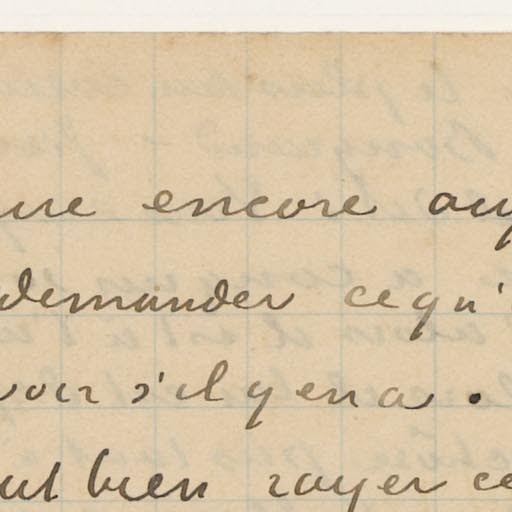 encore auj
demander ce qu'
voir s'il y en a.
ut bien rayer ce